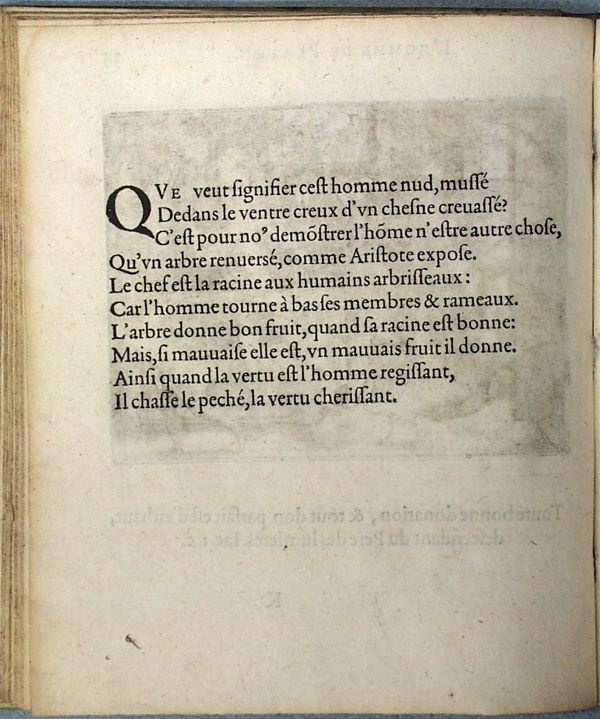 QVE veut ſignifier ceſt homme nud, muſſé
Dedans le ventre creux d'vn cheſne creuaſſé?
C'eſt pour noꝰ demõſtrer l'hõme n'eſtre autre choſe,
Qu'vn arbre renuersé, comme Ariſtote expoſe.
Le chef eſt la racine aux humains arbriſſeaux:
Car l'homme tourne à bas ſes membres & rameaux.
L'arbre donne bon fruit, quand ſa racine eſt bonne:
Mais, ſi mauuaiſe elle eſt, vn mauuais fruit il donne.
Ainſi quand la vertu eſt l'homme regiſſant,
Il chaſſe le peché, la vertu cheriſſant.